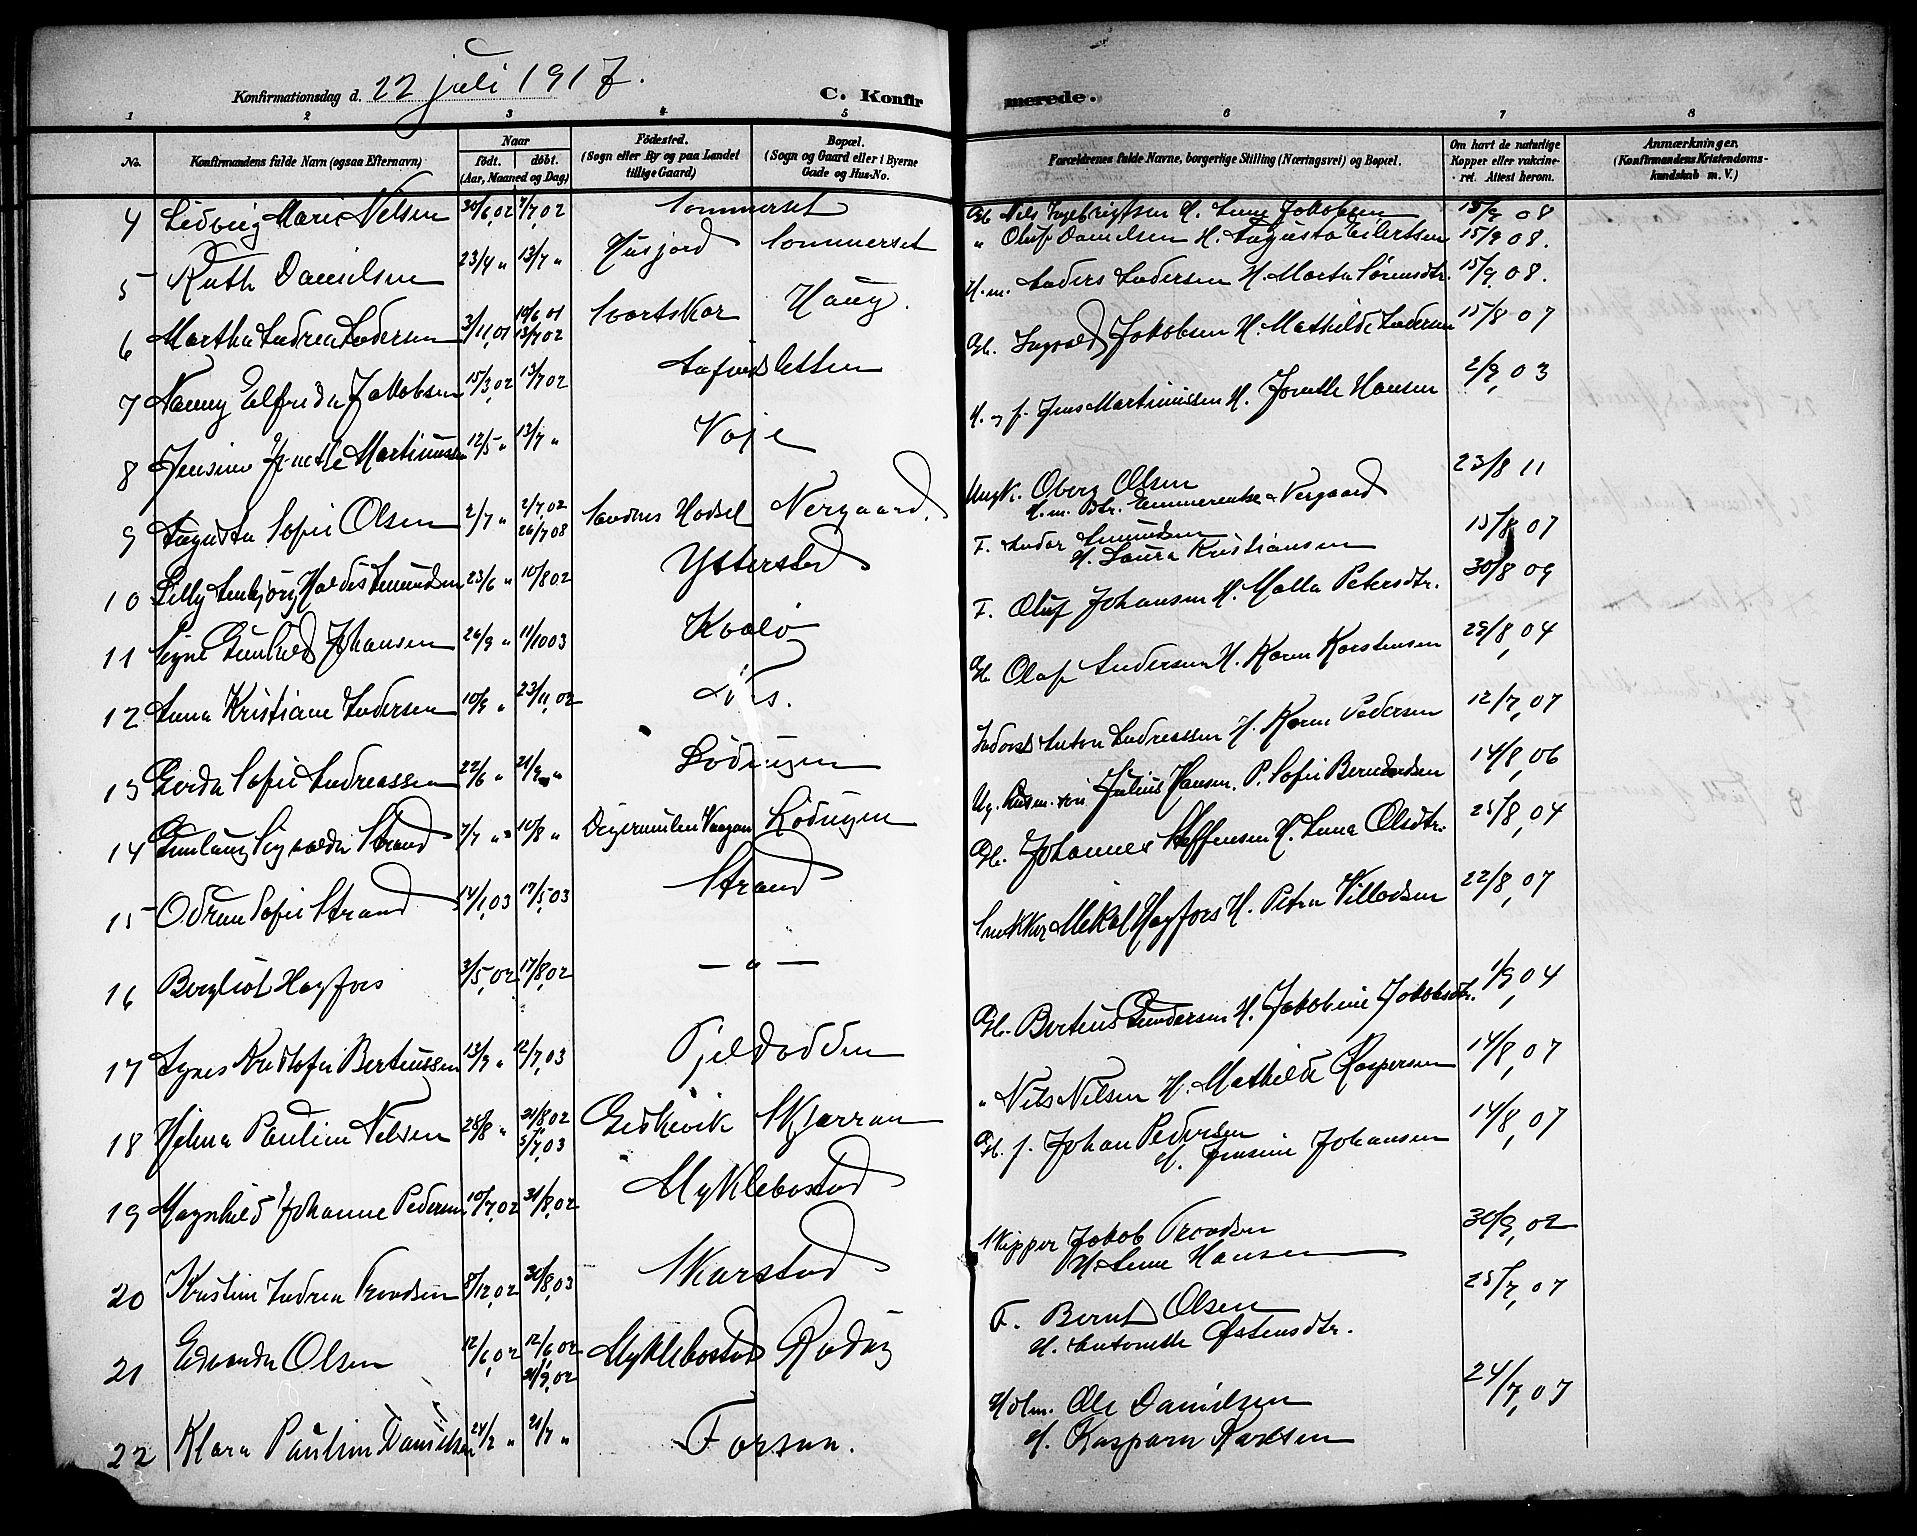 Konfirmationsdag d. 22 juli 1917. C. Konfirmerede.
1 2 3 4 5 6 7 8
No. Konfirmandens fulde Navn (ogsaa Efternavn) Naar født. døbt. (Aar, Maaned og Dag) Fødested. (Sogn eller By og paa Landet tillige Gaard) Bopæl. (Sogn og Gaard eller i Byerne Gade og Hus-No. Forældrenes fulde Navne, borgerlige Stilling (Næringsvei) og Bopæl. Om havt de naturlige Kopper eller vakcineret. Attest herom. Anmærkninger. (Konfirmandens Kristendomskundskab m. V.)
4 Ludvig Marie Nelsen 30/6,02 7/7,02 Sommerset Gb. Nils Ingebrigtsen H. Jakobsen 15/9 08
5 Ruth Danielsen 23/4 " 13/7 " Husjord Sommerset " Oluf Danielsen H. Augusta Eilertsen 15/9 08.
6 Martha Andrea Andersen 3/11,01 13/7 02 Svartskar Haug. H.m. Anders Andersen H. Marta Sørensdtr. 15/9, 08.
7 Nanny Elfrida Jakobsen 15/3,02 13/7 02 Gb. Ingvald Jakobsen H. Mathilde Andersen 15/8 07
8 Jensine Martinussen 12/5 " 13/7 " Voje H. og f. Jens Martinussen H. Hansen 2/9, 03
9 Augusta Sofie Olsen 2/7 " 2/7,02 26/7 08 Sandnes Hadsel Nergaard. Ungk. Oberg Olsen H.m. Dtr. Emmerentse Nergaard 23/8 11
10 Lilly Haldis Amundsen 23/6 " 10/8 02 Ytterstad F. Amundsen H. Laura Kristiansen 15/8, 07
11 Signe Gunhild Johansen 26/9 " 11/10 03 Kvalø F. Oluf Johansen H. Malla Petersdtr. 30/8 09
12 Anna Kristiane Andersen 10/9 " 23/11,02 Gb. Olaf Andersen H. Karen Karstensen 29/8, 04
13 Gerda Sofie Andreassen 22/6 " 21/9 " Lødingen Anton Andreassen H. Karen Pedersen 12/7, 07
14 Gunlaug Sigvalda Strand 7/7 " 10/8 " Digermulen Vaagan Lødingen Julius Hansen. P. Sofie Berntsen 14/8, 06
15 Odrun Sofie Strand 14/1,03 17/5,03 Strand Gb. Johannes Steffensen H. Anna Olsdtr. 25/8, 04
16 Bergliot Hagfors 3/5,02 17/8,02 — " — Snekker Mikal Hagfors H. Petra Villadsen 22/8, 07
17 Agnes Bertiussen 13/9 " 12/7,03 Fjeldodden Gb. Bertius Andersen H. Jakobine Jakobsdtr. 1/9, 04
18 Hilma Pauline Nilsen 28/8 " 31/8,02 5/7,03 Geskevik Skjærran " Nils Nilsen H. Mathilde Kaspersen 14/8, 07
19 Magnhild Johanne Pedersen 10/7,02 31/8,02 Myklebostad Gb. f. Johan Pedersen H. Jensine Johansen 14/8, 07
20 Kristine Andrea Trondsen 8/12,02 30/8,03 Skarstad Skipper Jakob Trondsen H. Hansen 30/9, 02
21 Edvarda Olsen 12/6,02 12/6,02 21/9,02 Myklebostad Rødøy F. Bernt Olsen H. Antonette Østensdtr. 25/7, 07
22 Klara Pauline Danielsen 24/2 " 21/7 " Forsaa. Holm. Ole Danielsen H. Kaspara 24/7, 07